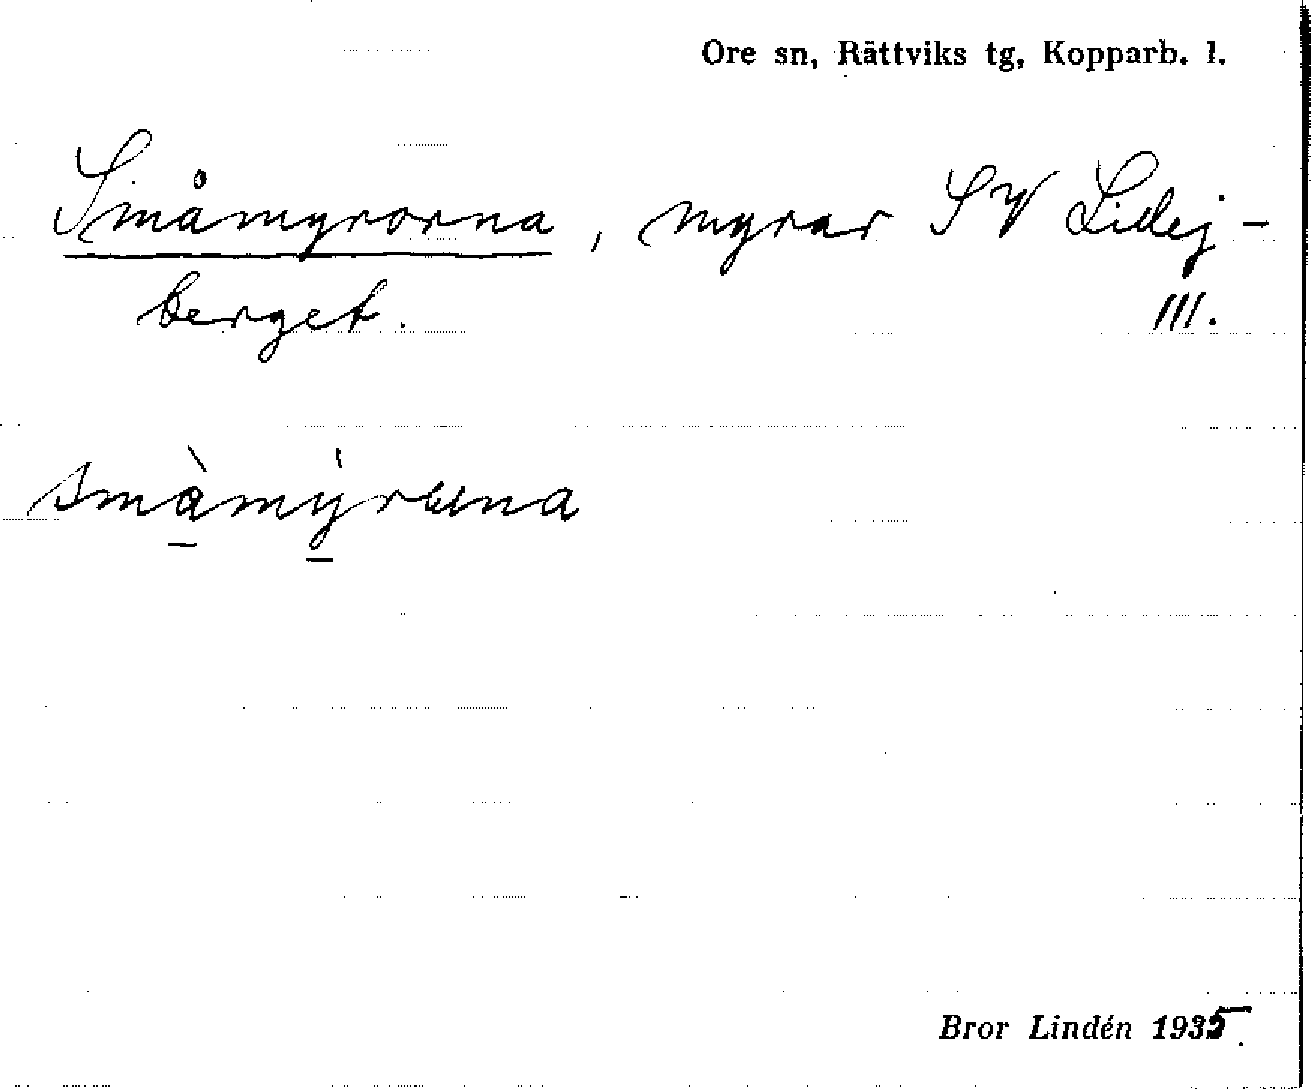 Ore sn, Rättviks tg, Kopparb. l.
Småmyrorna, myrar SV Lidej-
berget. III.
smàmýrana
Bror Lindén 1935.